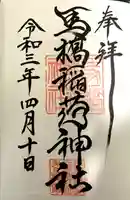 奉拝
馬橋稲荷神社
令和三年四月十日